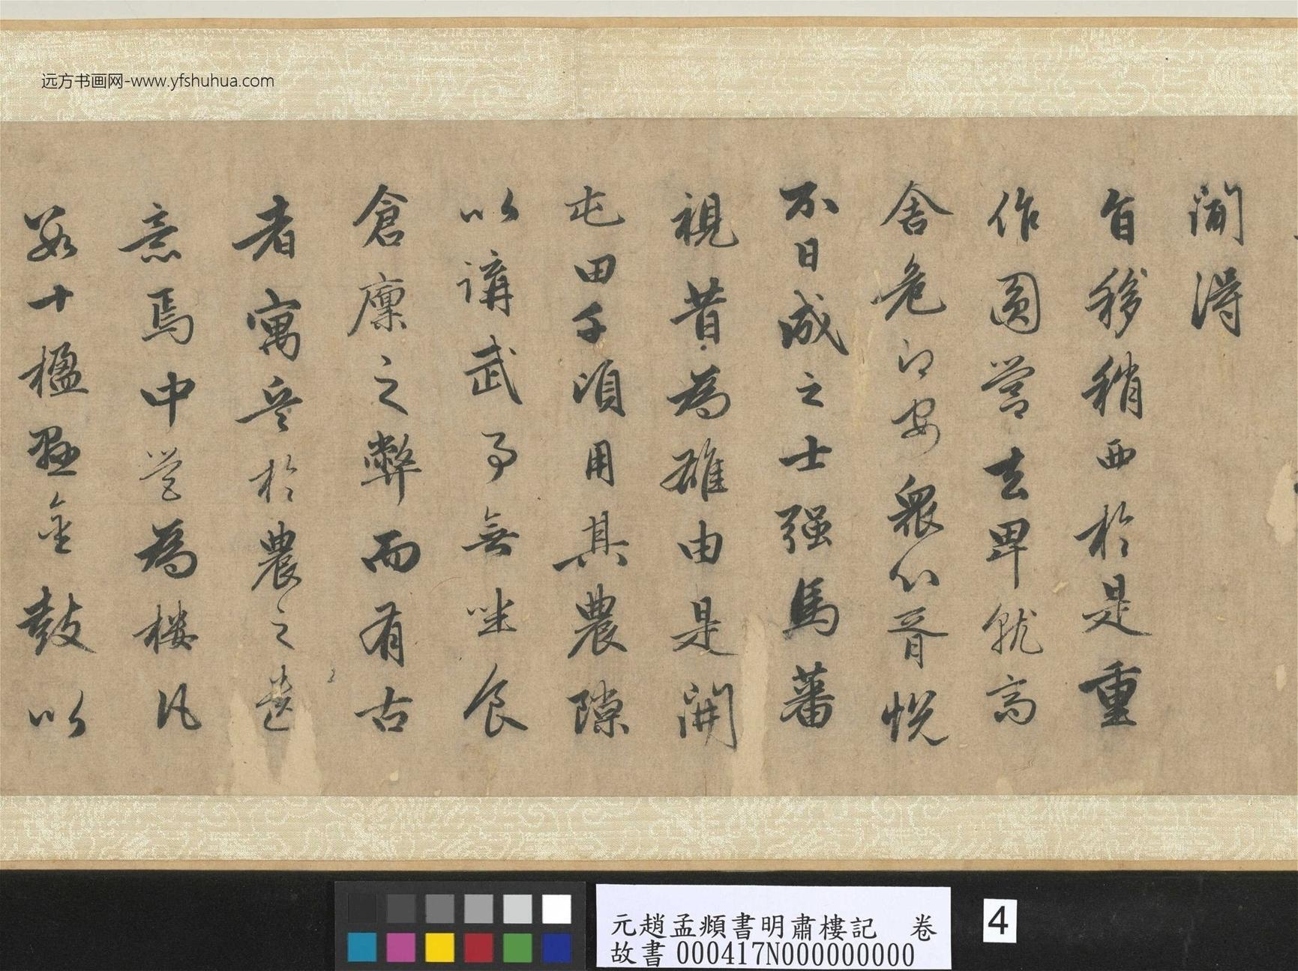 远方书画网-www.yfshuhua.com
聞得
旨移稍西於是重
作圓營去卑就高
舍危即安衆心胥悦
不日成之士强馬蕃
視昔為雄由是開
屯田千頃用其農隙
以講武事無坐食
倉廩之弊而有古
者寓兵於農之遺
意焉中營為樓凡
若十楹懸金鼓以
元趙孟頫書明肅樓記 卷
故書000417N000000000
4